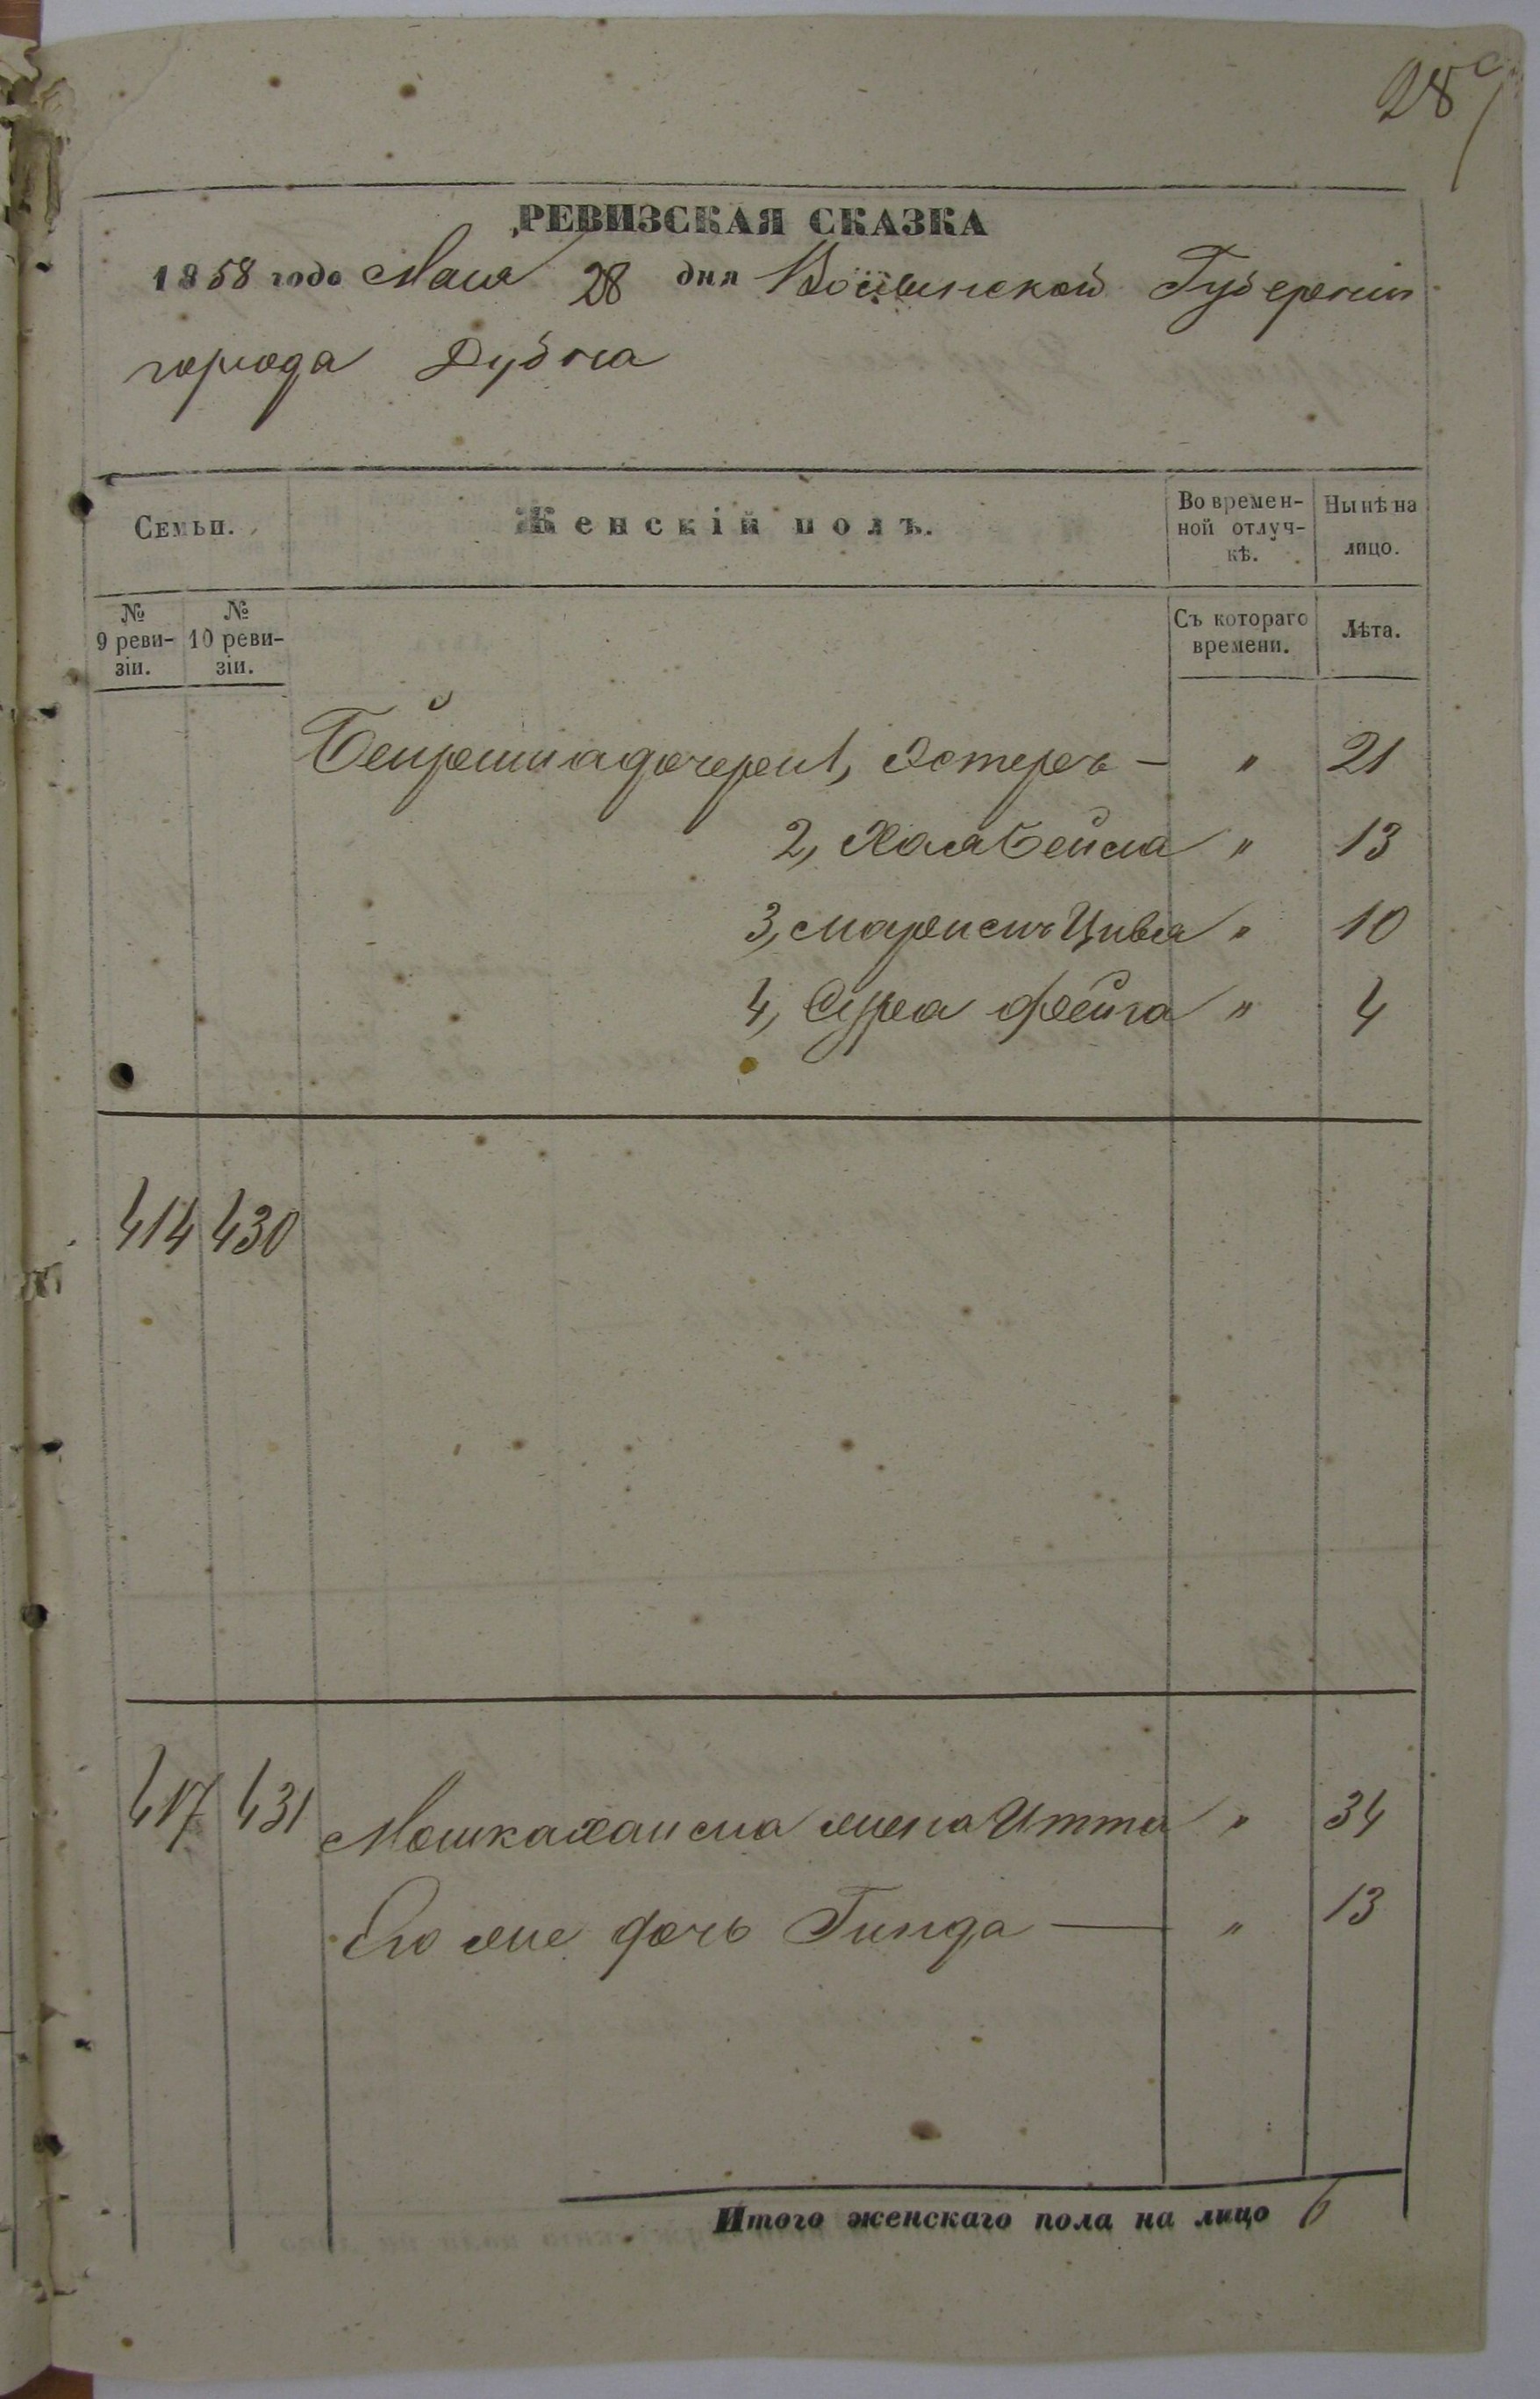 28
РЕВИЗСКАЯ СКАЗКА
1858 года Мая 28 дня Волынской Губернии
города Дубна
Семьи.
Женскій полъ.
Во времен-
ной отлуч-
кѣ.
Нынѣ на
лицо.
№
9 реви-
зіи.
№
10 реви-
зіи.
Съ котораго
времени.
Лѣта.
дочери 1, Эстеръ — " 21
2, Хая Бейла " 13
3, Цивя " 10
4, Сура Фейга " 4
414 430
417 431 Мошка Хаима жена Итта " 34
Его же дочь Гинда — " 13
Итого женскаго пола на лицо 6